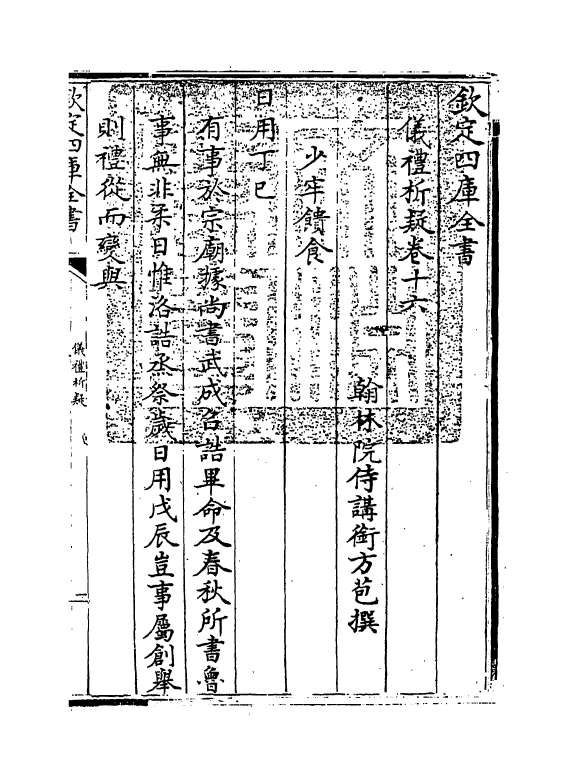 欽定四庫全書
儀禮析疑卷十六
翰林院侍講銜方苞撰
少牢饋食
日用丁巳
有事於宗廟據尚書武成召誥畢命及春秋所書魯
事無非柔日惟洛誥烝祭歲日用戊辰豈事屬創舉
則禮從而變與
欽定四庫全書
儀禮析疑